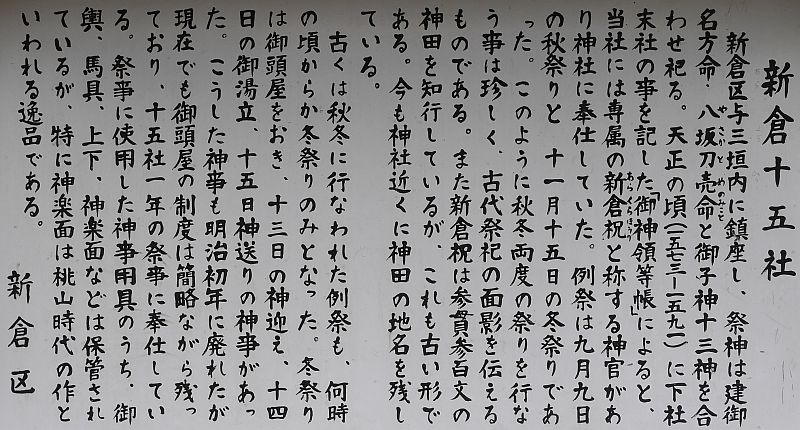 新倉十五社
新倉区与三垣内に鎮座し、祭神は建御
名方命・八坂刀売命と御子神十三神を合
やさかとめのみこと
わせ祀る。天正の頃(一五七三―一五九一)に下社
末社の事を記した「御神領等帳」によると、
当社には専属の新倉祝と称する神官があ
あらくらほうり
り神社に奉仕していた。例祭は九月九日
の秋祭りと 十一月十五日の冬祭りであ
った。このように秋冬両度の祭りを行な
う事は珍しく、古代祭祀の面影を伝える
ものである。また新倉祝は参貫参百文の
神田を知行しているが、これも古い形で
ある。今も神社近くに神田の地名を残し
ている。
古くは秋冬に行なわれた例祭も、何時
の頃からか冬祭りのみとなった。冬祭り
は御頭屋をおき、十三日の神迎え、十四
日の御湯立、十五日神送りの神事があっ
た。こうした神事も明治初年に廃れたが
現在でも御頭屋の制度は簡略ながら残っ
ており、十五社一年の祭事に奉仕してい
る。祭事に使用した神事用具のうち、御
輿、馬具、上下、神楽面などは保管され
ているが、特に神楽面は桃山時代の作と
いわれる逸品である。
新倉区